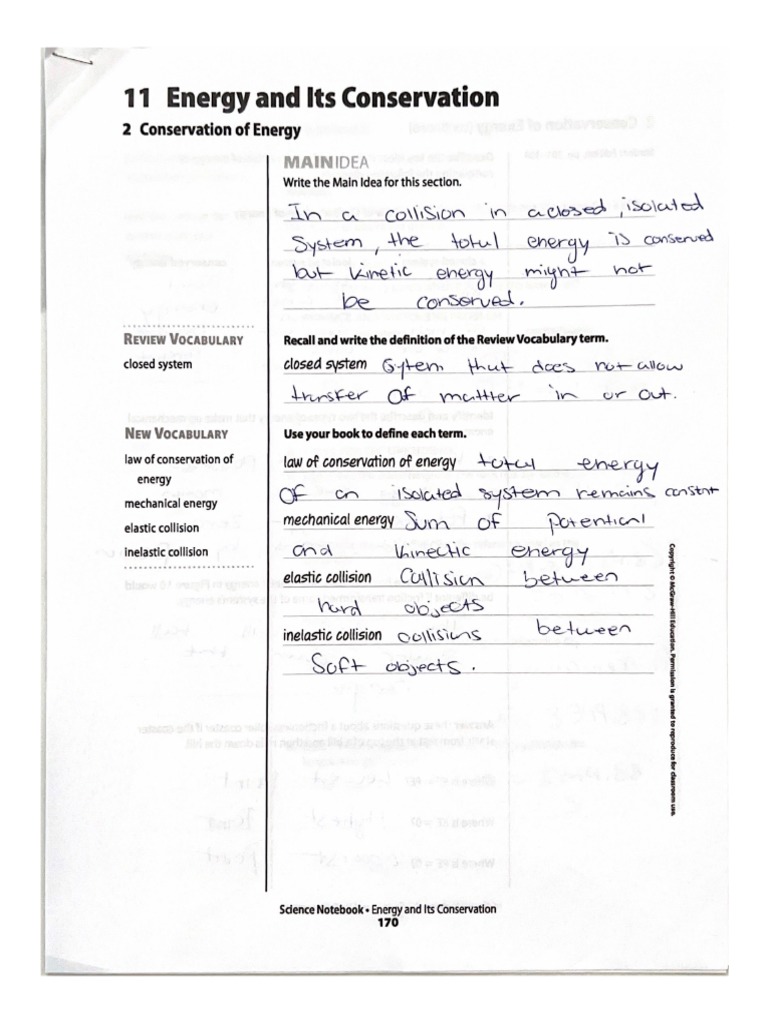 11 Energy and Its Conservation
2 Conservation of Energy
MAINIDEA
Write the Main Idea for this section.
In a collision in a closed, isolated
System, the total energy is conserved
but kinetic energy might not
be conserved.
REVIEW VOCABULARY
closed system
Recall and write the definition of the Review Vocabulary term.
closed system Sytem that does not allow
transfer of mattter in or out.
NEW VOCABULARY
law of conservation of
energy
mechanical energy
elastic collision
inelastic collision
Use your book to define each term.
law of conservation of energy total energy
Of an isolated system remains constnt
mechanical energy Sum of Potential
and kinectic energy
elastic collision Collision between
hard objects
inelastic collision collisions between
Soft objects.
Copyright © McGraw-Hill Education. Permission is granted to reproduce for classroom use.
Science Notebook • Energy and Its Conservation
170